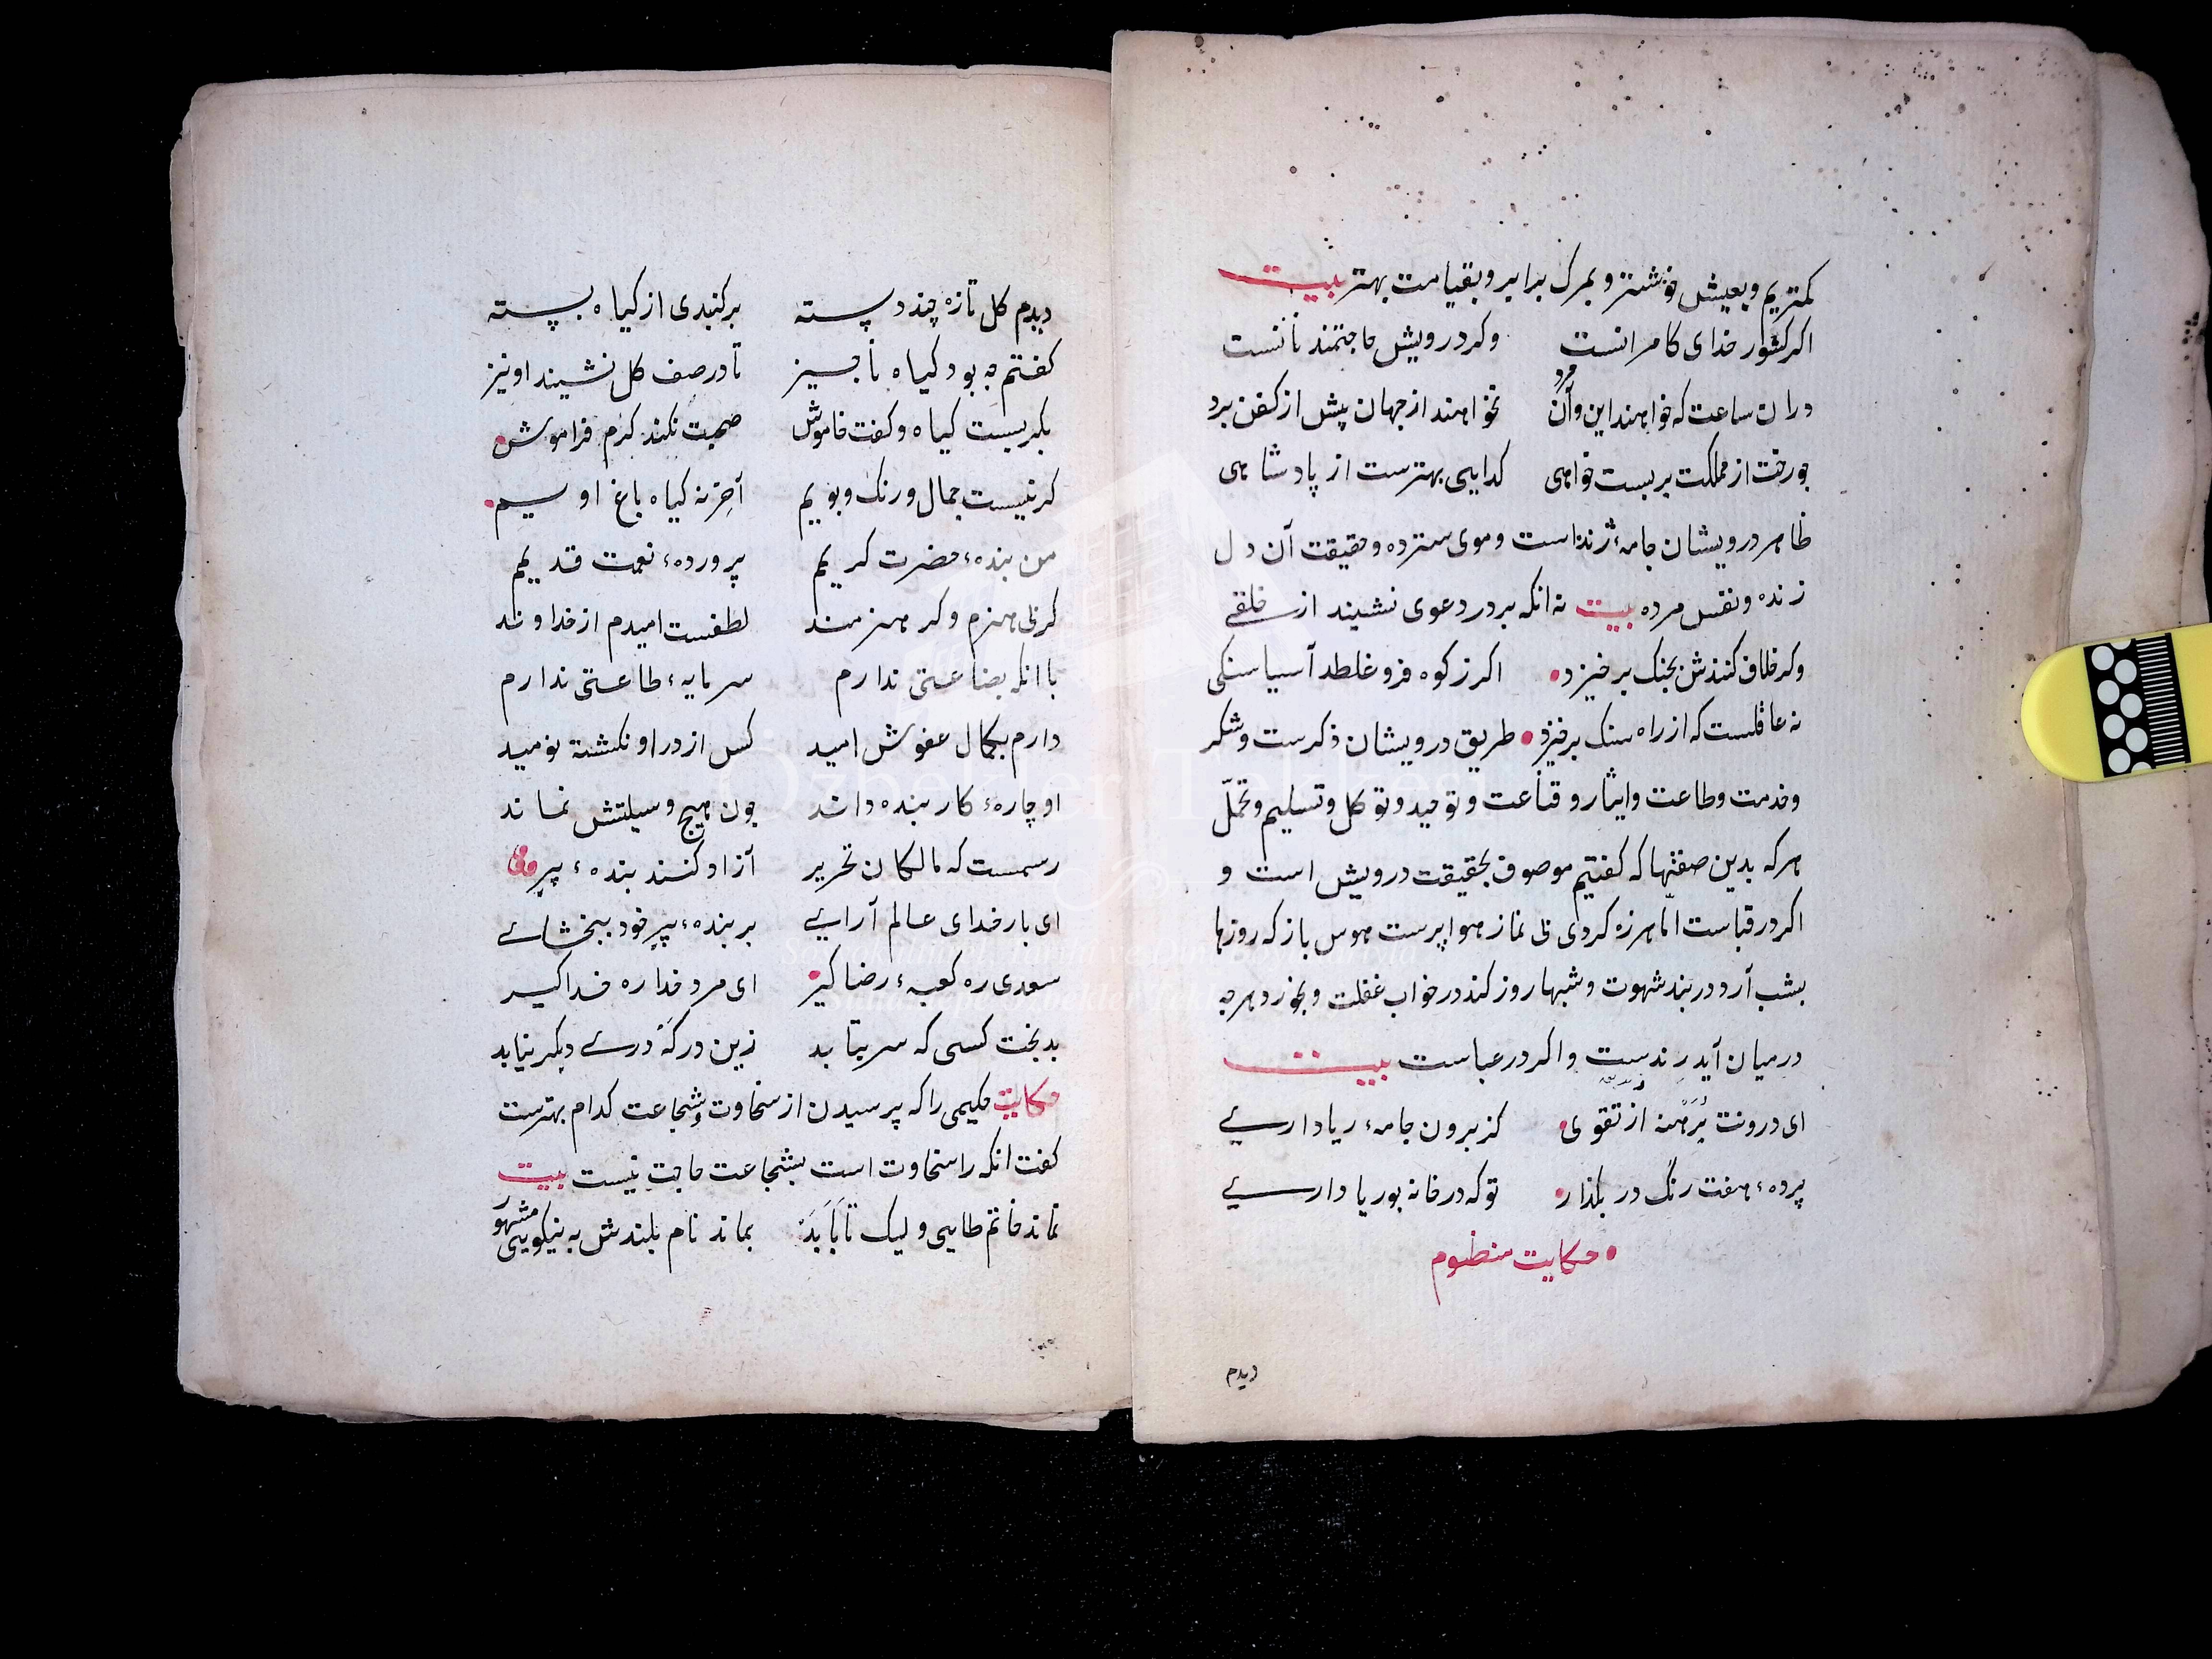 کمتریم و بعیش خوشتر و بمرک برابر و بقیامت بهتر بیت
اکر کشور خدای کامرانست وکر درویش حاجتمند نانست
دران ساعت که خواهند این وآن مرد نخواهند از جهان پیش از کفن برد
چو رخت از مملکت بربست خواهی کدایی بهترست از پادشاهی
ظاهر درویشان جامهٔ ژنداست و موی سترده و حقیقت آن دل
زنده و نفس مرده بیت نه انکه بر در دعوی نشیند از خلقی
وکر خلاف کنندش بجنک برخیزد اکر ز کوه فرو غلطد آسیا سنکی
نه عاقلست که از راه سنک برخیزد طریق درویشان ذکرست و شکر
و خدمت و طاعت و ایثار و قناعت و توحید و توکل و تسلیم و تحمّل
هرکه بدین صفتها که کفتیم موصوف بحقیقت درویش است و
اکر در قباست امّا هرزه کردی بی نماز هوا پرست هوس باز که روزها
بشب آرد در بند شهوت و شبها روز کند در خواب غفلت و بخورد هرچه
درمیان آید رندست و اکر در عباست بیت
ای درونت برهنه از تقوی کز برون جامهٔ ریا داری
پردهٔ هفت رنگ در بکذار توکه در خانه بوریا داری
حکایت منظوم
دیدم
دیدم کل تازه چند دسته برکنبدی از کیاه بسته
کفتم چه بود کیاه ناچیز تا در صف کل نشیند او نیز
بکریست کیاه و کفت خاموش صحبت نکند کرم فراموش
کر نیست جمال و رنک و بویم آخر نه کیاه باغ اویم
من بندهٔ حضرت کریم پروردهٔ نعمت قدیم
کر بی هنرم وکر هنرمند لطفست امیدم از خداوند
با انکه بضاعتی ندارم سرمایهٔ طاعتی ندارم
دارم بکمال عفوش امید کس از در او نکشته نومید
او چارهٔ کار بنده داند چون هیچ وسیلتش نماند
رسمست که مالکان تحریر آزاد کنند بندهٔ پیر
ای بار خدای عالم آرای بر بندهٔ پیر خود ببخشای
سعدی ره کعبهٔ رضا کیر ای مرد خدا ره خدا کیر
بدبخت کسی که سر بتابد زین درکه دری دیکر نیابد
حکایت حکیمی را که پرسیدن از سخاوت و شجاعت کدام بهترست
کفت انکه را سخاوت است بشجاعت حاجت نیست بیت
نماند حاتم طایی و لیک تا بابد بماند نام بلندش به نیکویی مشهور